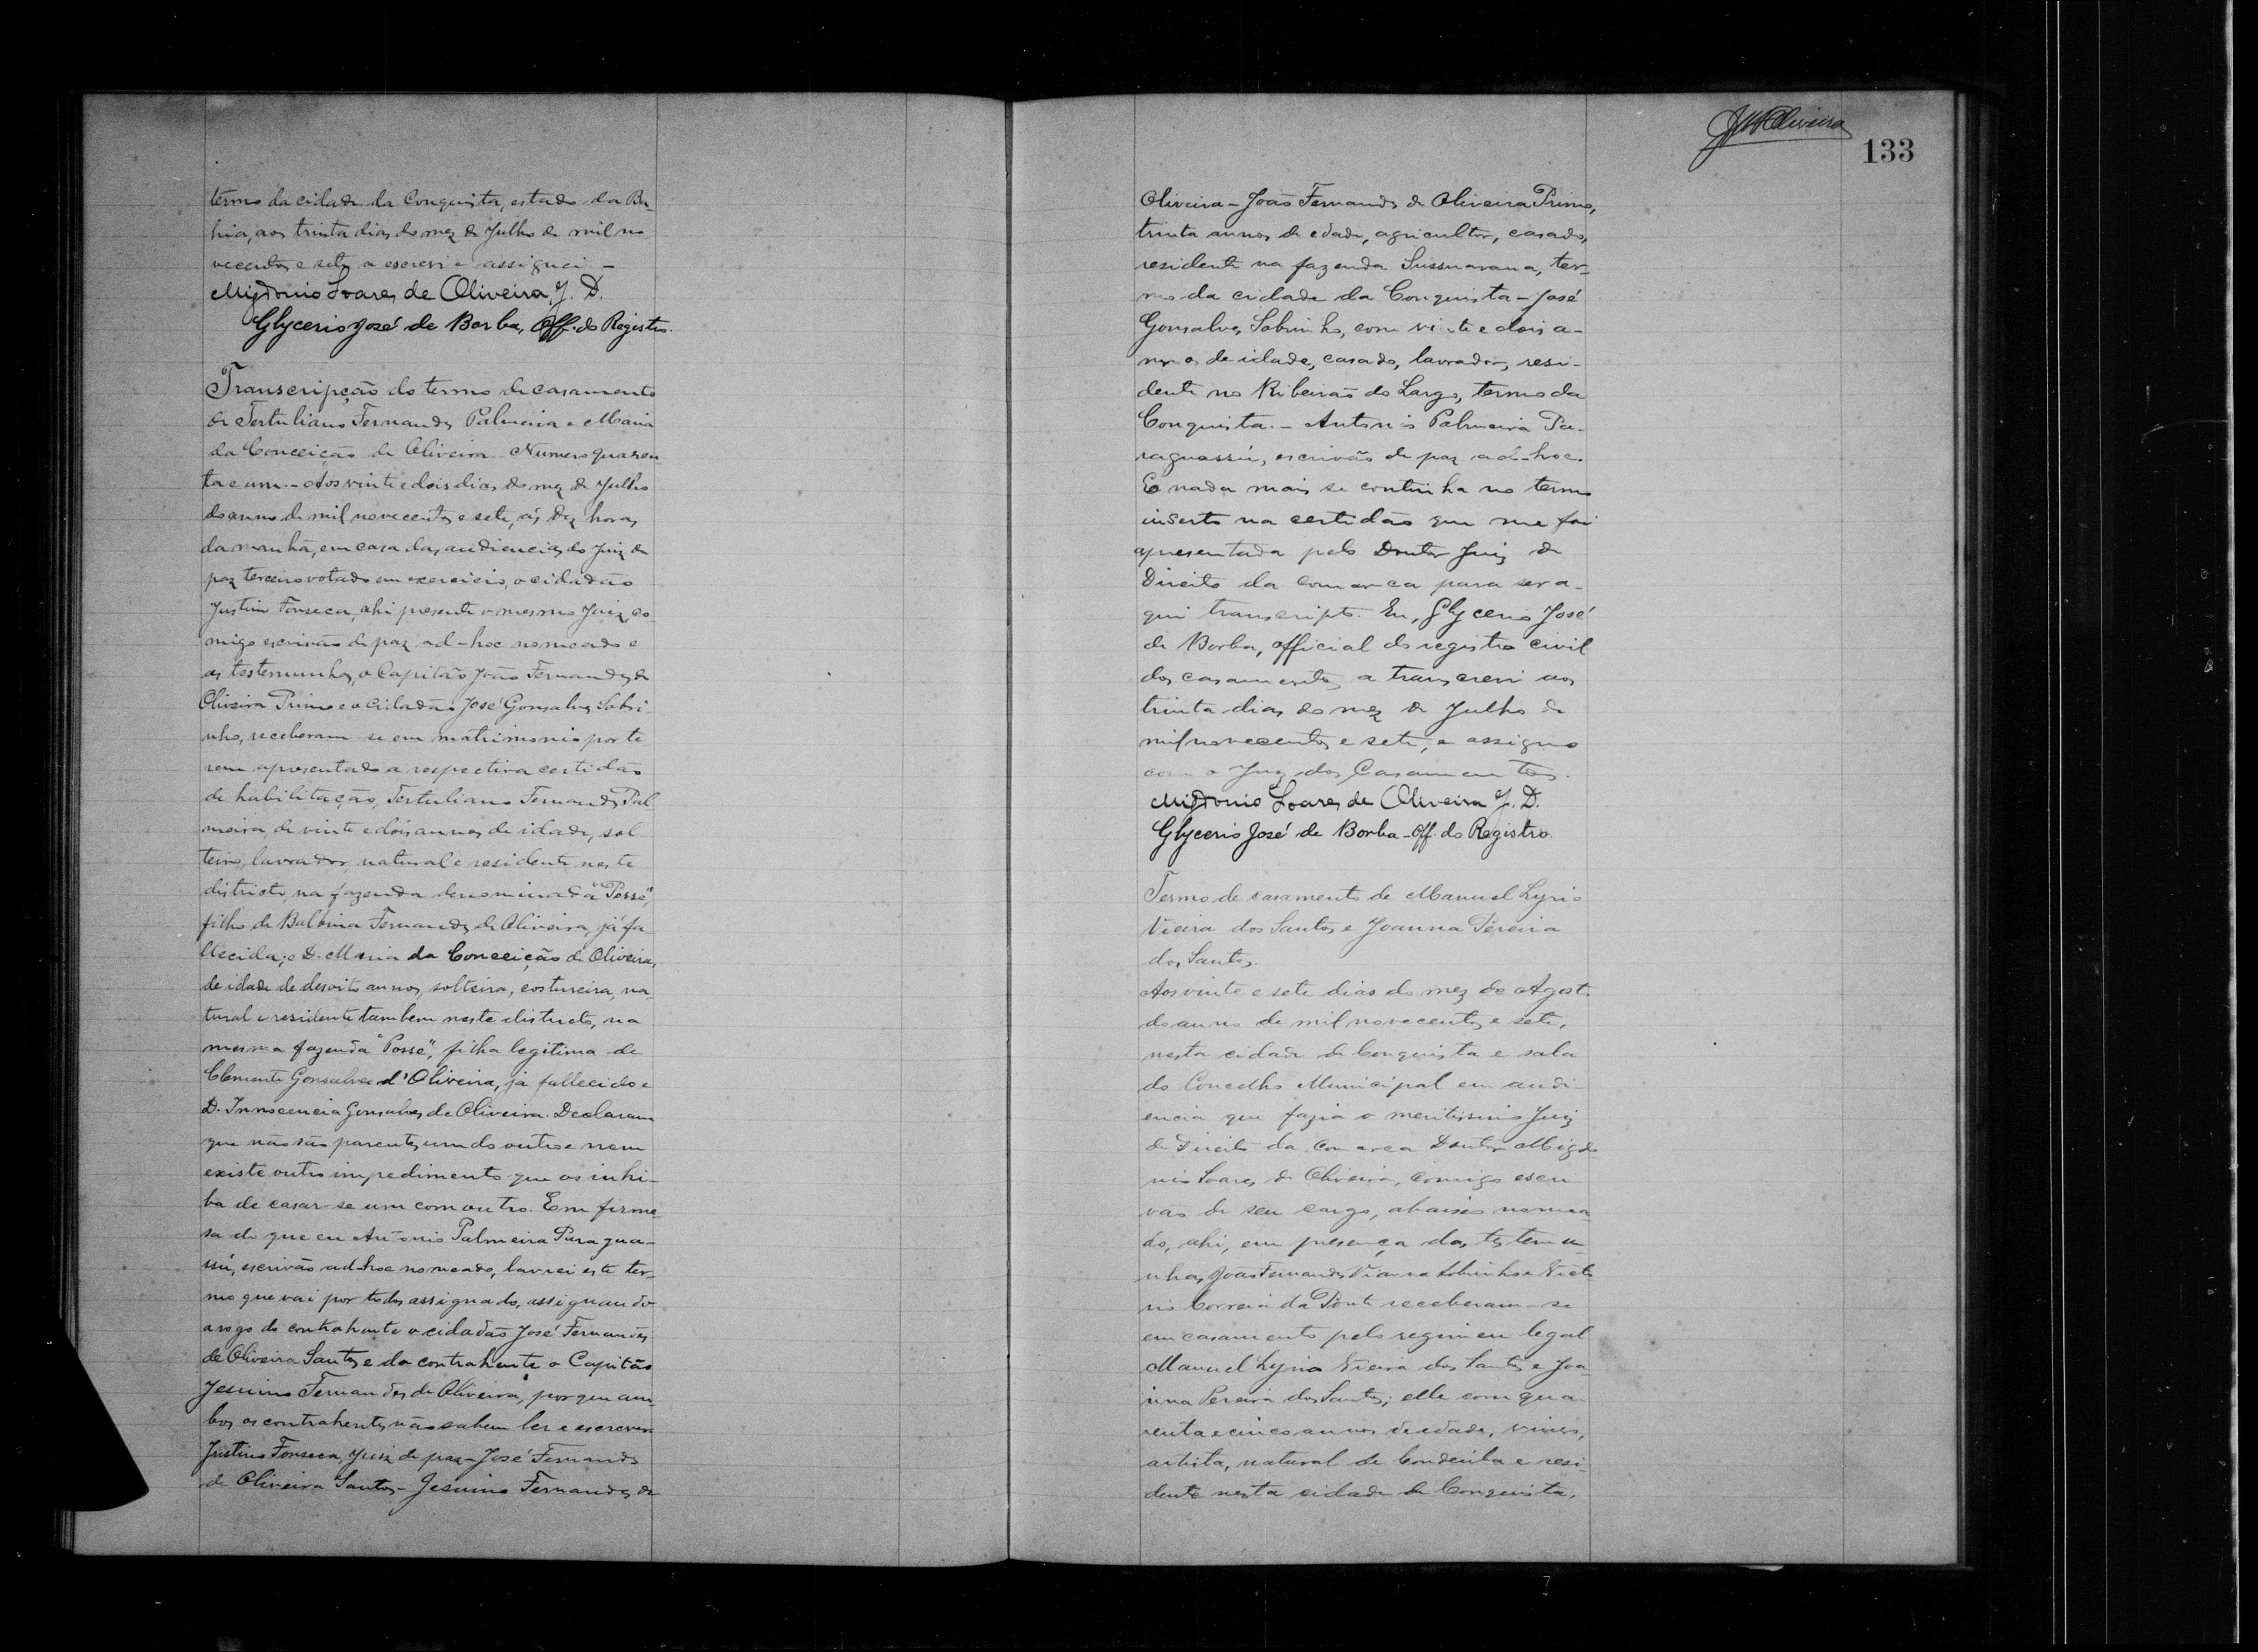 termo da cidade da Conquista, estado da Ba-
hia, aos trinta dias do mez de Julho de mil no-
vecentos e sete, a escrevi e assignei -
Migdonio Soares de Oliveira, J. D.
Glycerio José de Borba, Off. do Registro.
Transcripção do termo de casamento
de Tertuliano Fernandes Palmeira e Maria
da Conceição de Oliveira - Numero quaren-
ta e um. - Aos vinte e dois dias do mez de Julho
do anno de mil novecentos e sete, ás dez horas
da manhã, em casa das audiencias do Juiz de
paz terceiro votado em exercicio, o cidadão
Justino Fonseca, ahi presente o mesmo Juiz, co-
migo escrivão de paz ad-hoc nomeado e
as testemunhas, o Capitão João Fernandes de
Oliveira Primo e o cidadão José Gonsalves Sobri-
nho, receberam se em matrimonio por te
rem apresentado a respectiva certidão
de habilitação, Tertuliano Fernandes Pal
meira, de vinte e dois annos de idade, sol
teiro, lavrador, natural e residente neste
districto, na fazenda denominada "Posse",
filho de Balbina Fernandes de Oliveira, já fa
llecida; e D. Maria da Conceição de Oliveira,
de idade de desoito annos, solteira, costureira, na-
tural e residente tambem neste districto, na
mesma fazenda "Posse", filha legitima de
Clemente Gonsalves d'Oliveira, já fallecido e
D. Innocencia Gonsalves de Oliveira. Declaram
que não são parentes um do outro e nem
existe outro impedimento que os inhi-
ba de casar-se um com outro. Em firme-
sa do que eu Antonio Palmeira Paragua-
ssú, escrivão ad-hoc nomeado, lavrei este ter-
mo que vai por todos assignado, assignando
a rogo do contrahente o cidadão José Fernandes
de Oliveira Santos e da contrahente o Capitão
Jesuino Fernandes de Oliveira, por que am
bos os contrahentes não sabem ler e escrever
Justino Fonseca, Juiz de paz - José Fernandes
de Oliveira Santos - Jesuino Fernandes de
133
Oliveira - João Fernandes de Oliveira Primo,
trinta annos de edade, agricultor, casado,
residente na fazenda Sussuarana, ter-
mo da cidade da Conquista - José
Gonsalves Sobrinho, com vinte e dois a-
nnos de idade, casado, lavrador, resi-
dente no Ribeirão do Largo, termo da
Conquista. - Antonio Palmeira Pa-
raguassú, escrivão de paz ad-hoc.
E nada mais se continha no termo
inserto na certidão que me foi
apresentada pelo Doutor Juiz de
Direito da comarca para ser a-
qui transcripto. Eu, Glycerio José
de Borba, official do registro civil
dos casamentos, a transcrevi aos
trinta dias do mez de Julho de
mil novecentos e sete, e assigno
com o Juiz dos Casamentos.
Migdonio Soares de Oliveira J. D.
Glycerio José de Borba - Off. do Registro.
Termo de casamento de Manuel Lyrio
Vieira dos Santos e Joanna Pereira
dos Santos.
Aos vinte e sete dias do mez de Agosto
do anno de mil novecentos e sete,
nesta cidade de Conquista e sala
do Concelho Municipal em audi-
encia que fazia o meritissimo Juiz
de Direito da comarca Doutor Migdo
nio Soares de Oliveira, comigo escri
vão de seu cargo, abaixo nomea-
do, ahi, em presença das testemu-
nhas João Fernandes Vianna Sobrinho e Victo
rio Correia da Ponte receberam-se
em casamento pelo regimen legal
Manuel Lyrio Vieira dos Santos e Joa-
nna Pereira dos Santos; elle com qua-
renta e cinco annos de edade, viuvo,
artista, natural de Condeúba e resi-
dente nesta cidade de Conquista,